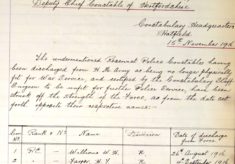 Deputy Chief Constable of Hertfordshire
Constabulary Headquarters
Hatfield.
15th November 1916
The undermentioned Reserved Police Constables having
been discharged from H. M. Army as being no longer physically
fit for War Service, and certified by the Constabulary
Surgeon to be unfit for further Police Service, have been
struck off the strength of the Force, as from the date set
forth opposite their respective names:-
Rank & No. Name Division Date of discharge from Force
1 P.C. Williams W. H. 26th August 1916
2 Harper H. J.